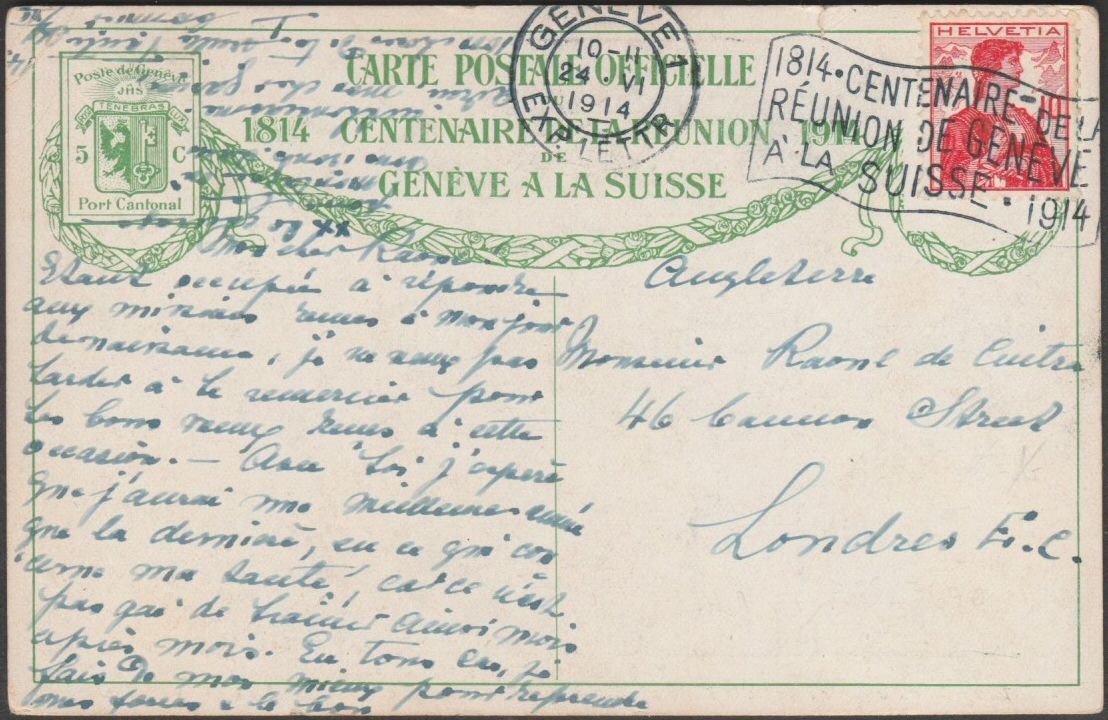 Poste de Genève
JHS
POST TENEBRAS LUX
5 C
Port Cantonal
CARTE POSTALE OFFICIELLE
1814 CENTENAIRE DE LA RÉUNION 1914
DE
GENÈVE A LA SUISSE
GENÈVE 1
10-11
24. VI
1914
EXP. LETTR.
1814 · CENTENAIRE DE LA
RÉUNION DE GENÈVE
À LA SUISSE · 1914
HELVETIA
10
Mon cher Raoul
Etant occupée à répondre
aux missives reçues à mon jour
de naissance, je ne veux pas
tarder à te remercier pour
tes bons vœux reçus à cette
occasion. — Avec toi j'espère
que j'aurai une meilleure année
que la dernière, en ce qui con
cerne ma santé, car ce n'est
pas gai de traîner ainsi mois
après mois. En tous cas, je
fais de mon mieux pour reprendre
mes forces & le bon
Angleterre
Monsieur Raoul de
46 Cannon Street
Londres E.C.